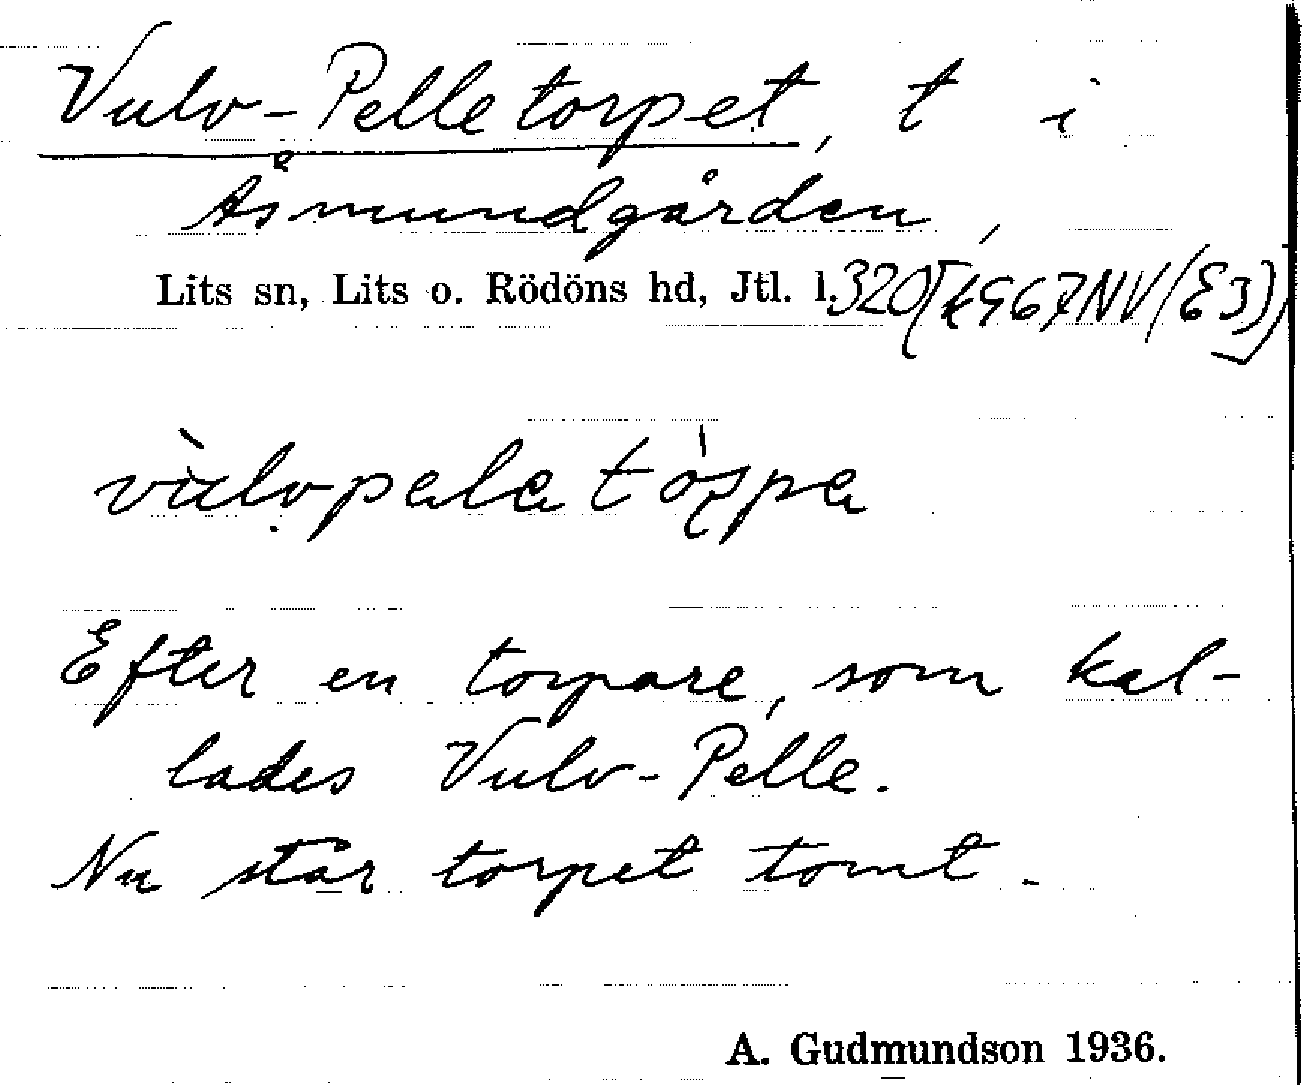 Vulv-Pelletorpet, t i
Åsmundgården,
Lits sn, Lits o. Rödöns hd, Jtl. l. 320 [4967NV(E3)]
Efter en torpare, som kal-
lades Vulv-Pelle.
Nu står torpet tomt.
A. Gudmundson 1936.